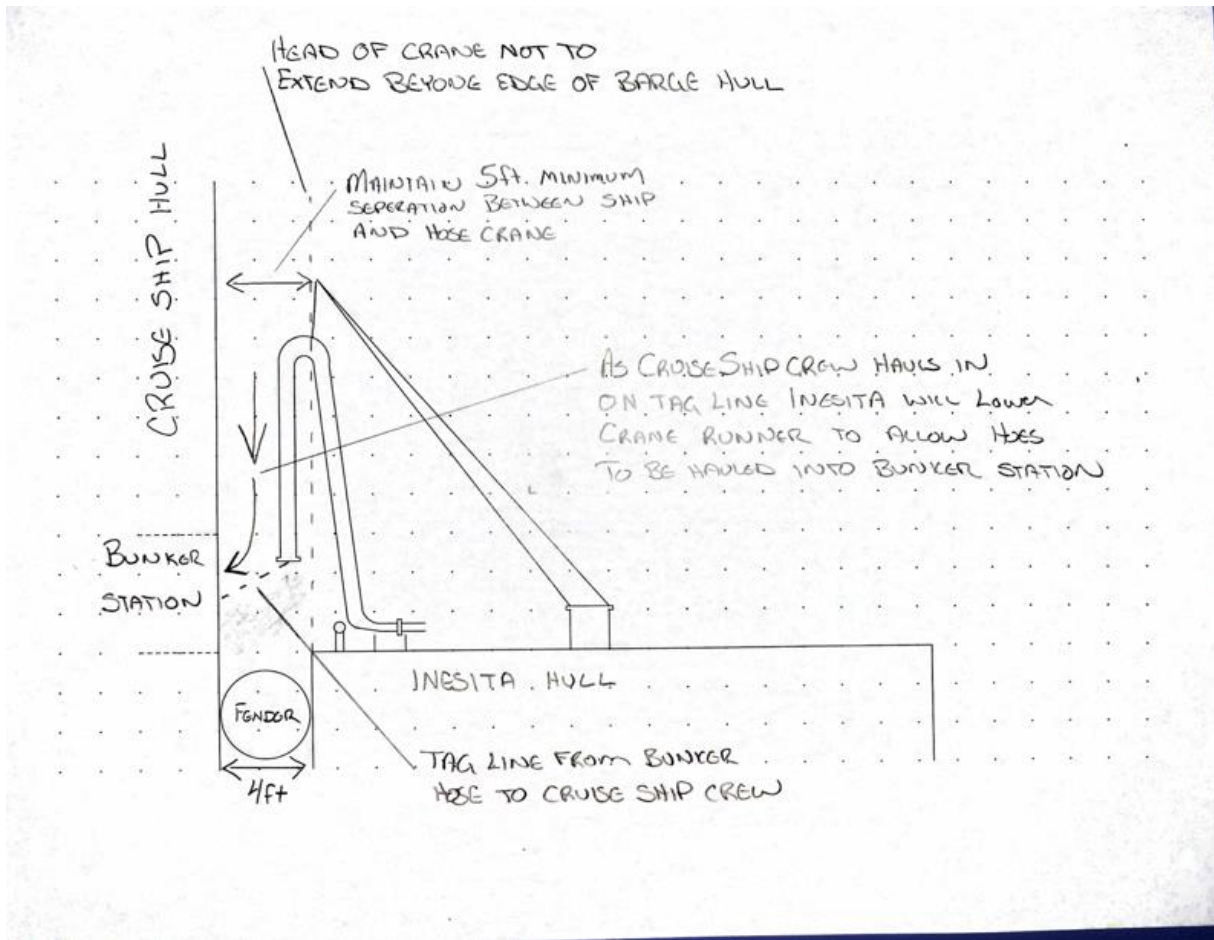 HEAD OF CRANE NOT TO
EXTEND BEYONE EDGE OF BARGE HULL
MAINTAIN 5ft. MINIMUM
SEPERATION BETWEEN SHIP
AND HOSE CRANE
CRUISE SHIP HULL
AS CRUISE SHIP CREW HAULS IN
ON TAG LINE INESITA WILL LOWER
CRANE RUNNER TO ALLOW HOES
TO BE HAULED INTO BUNKER STATION
BUNKER
STATION
INESITA HULL
FENDER
4ft
TAG LINE FROM BUNKER
HOSE TO CRUISE SHIP CREW